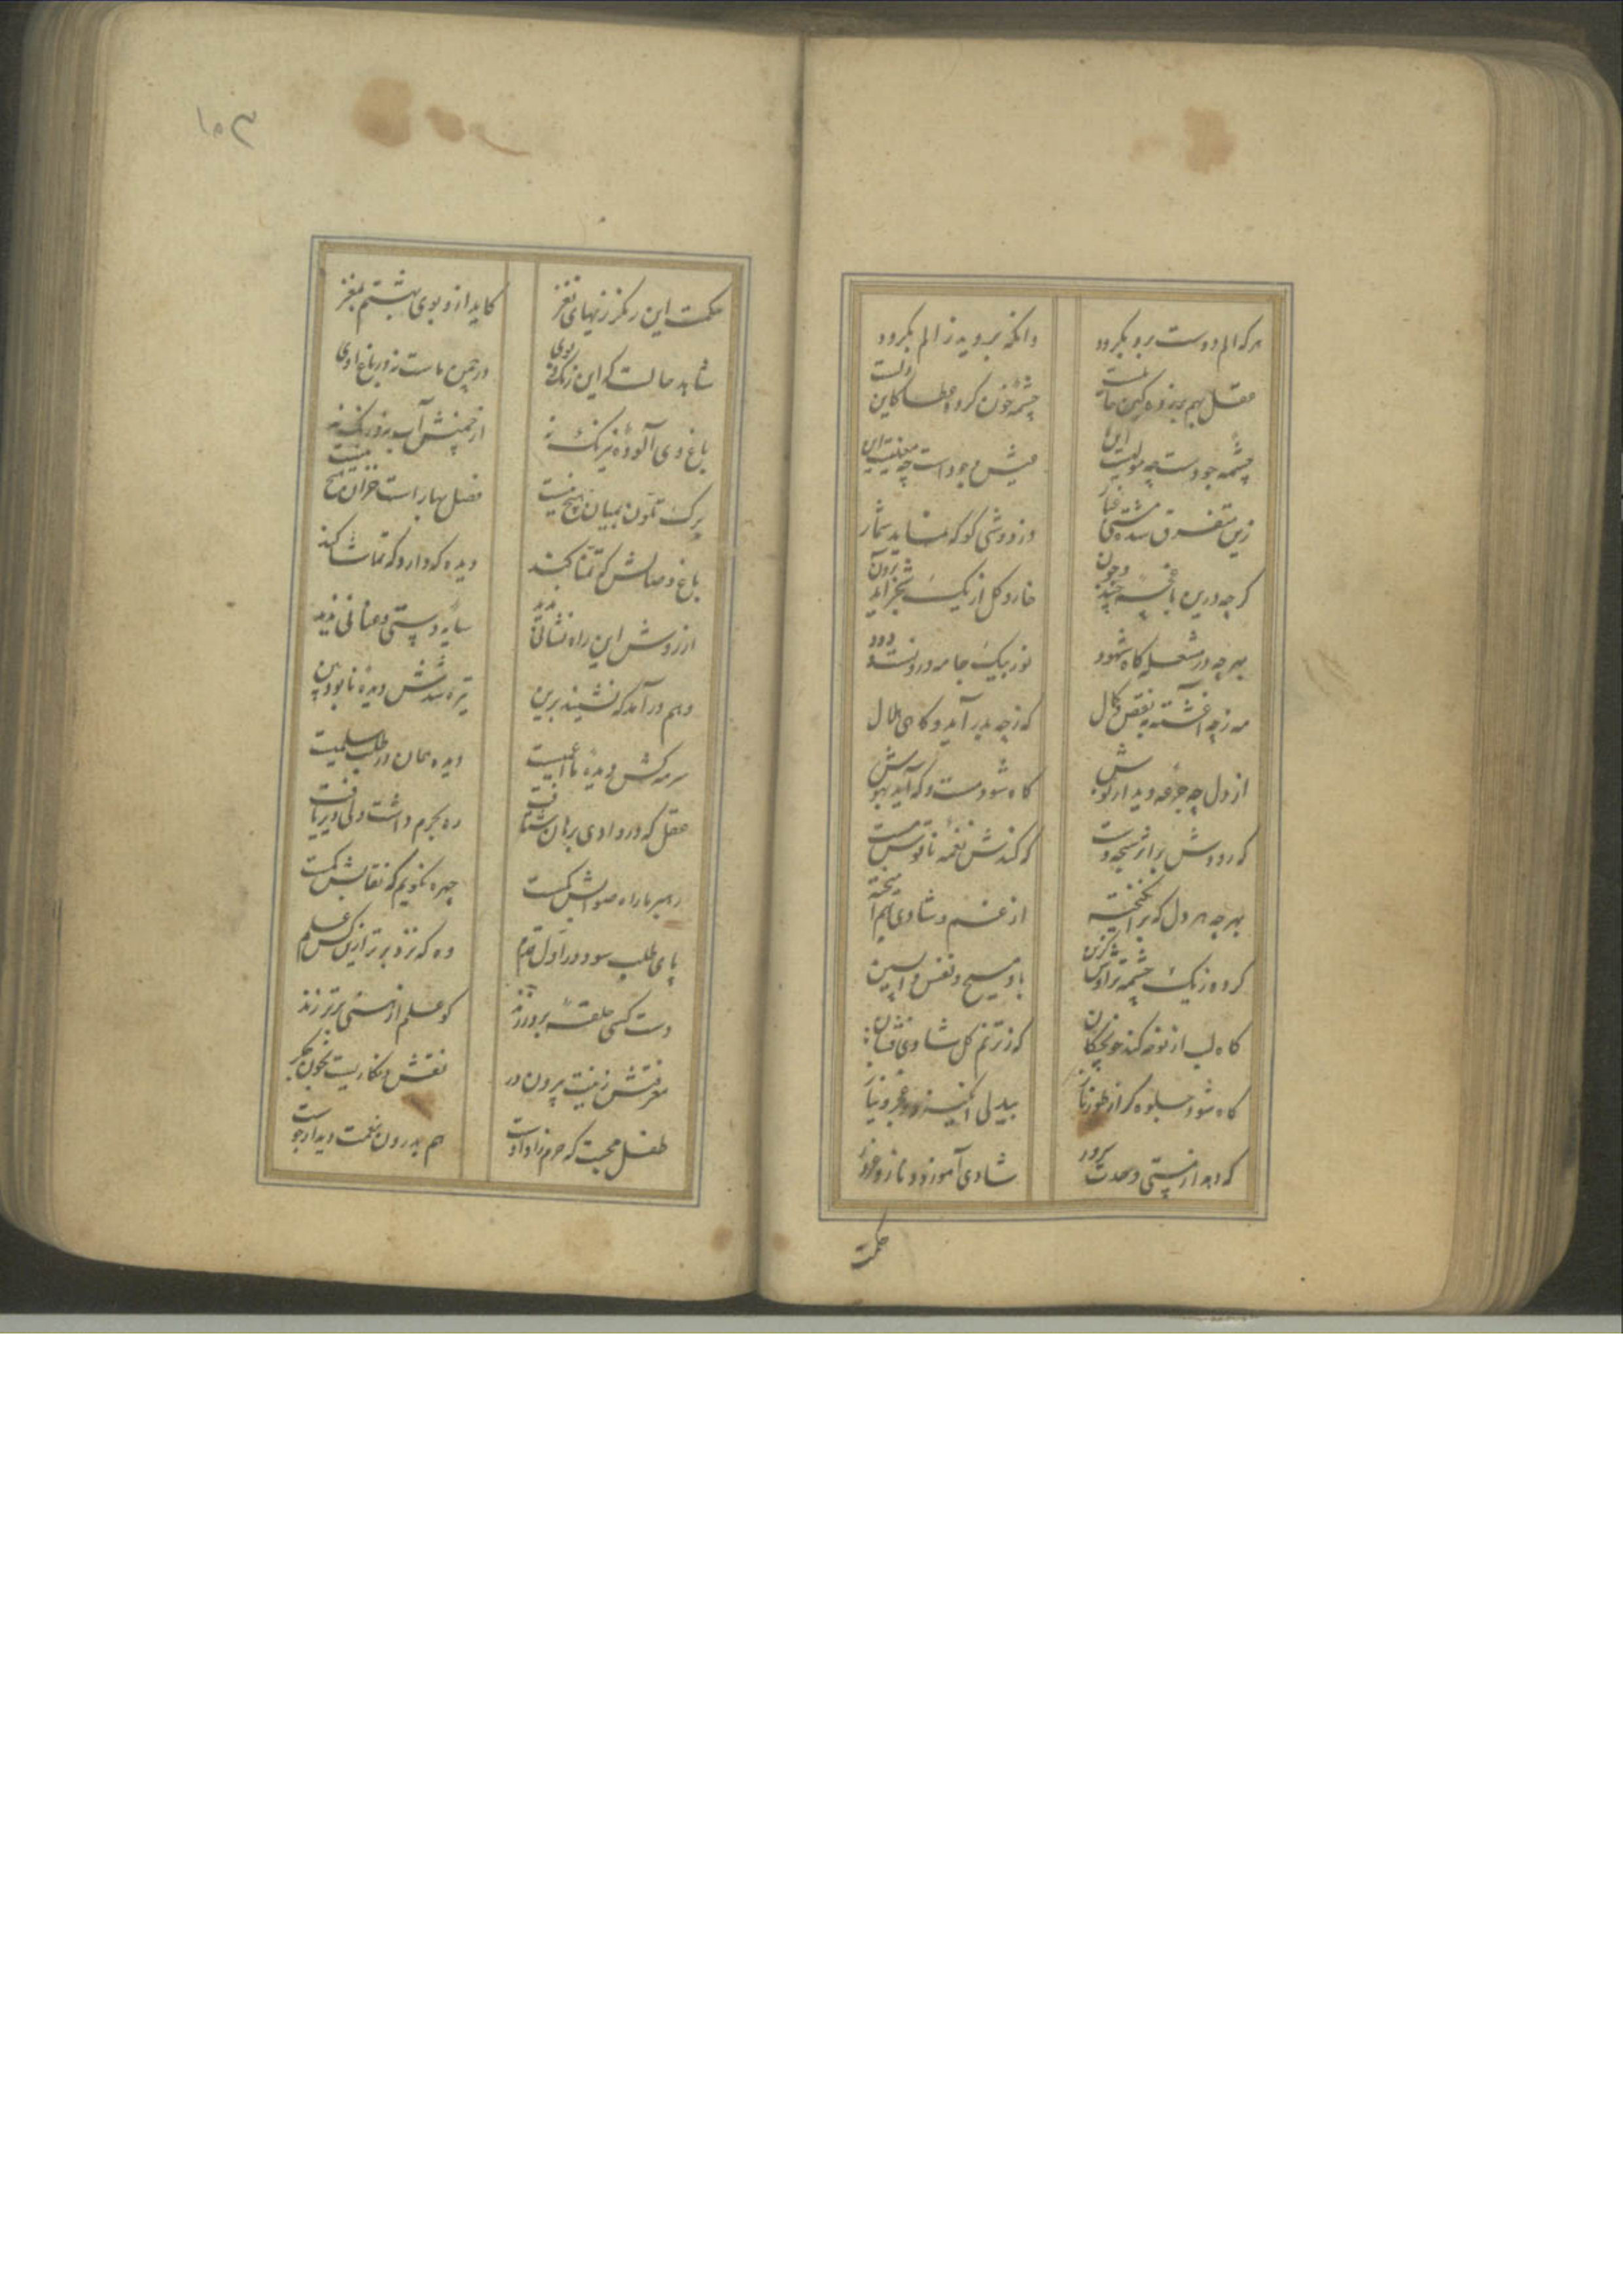 هر که الم دوست برو بگرود
وانکه بروید ز الم بگرود
عقل بهم بر زده کین حالت است
چشمهٔ خون کرده عطا کاین دلست
چشمهٔ جودست چه مولیت این
عیش وجودست چه معنیست این
زین متفرق شده مشتی غبار
درد وشی کو که نماید شمار
گرچه درین باغچهٔ چند و چون
خار و گل از یک شجر آید برون
بهر چه در مشعله گاه شهود
نور بیک جامه درونست و دود
مه ز چه آغشته به نقص و کمال
که ز چه بدر آید و گاهی هلال
از دل چه جرعهٔ دیدار نوش
گاه شود مست و گه آید بهوش
که رودش بر اثر سبحه دست
که کندش نغمهٔ ناقوس مست
بهر چه هر دل که برانگیخته
از غم و شادی بهم آمیخته
کرده ز یک چشمه تراوش گزین
باد مسیح و نفس واپسین
گاه لب از نوحه کند خونچکان
که ز ترنم گل شادی فشان
گاه شود جلوه گر از طور ناز
بیدلی انگیزد و عجز و نیاز
که دهد از پستی وحدت سرور
شادی آموزد و ناز و غرور
حکمت
۱۰۳
حکمت این رنگرزیهای نغز
کاید ازو بوی بهشتم بمغز
شاهد حالست که این رنگ و بوی
در چمن ماست نه در باغ اوی
باغ وی آلودهٔ نیرنگ نه
از چمنش آب بر و رنگ نه
برگ تلون بمیان هیچ نیست
فصل بهار است خزان هیچ نیست
باغ وصالش که تمنا کند
دیده که دارد که تماشا کند
از روش این راه نشانی ندید
سایه و پستی و عنانی ندید
وهم در آمد که نشیند برین
تیره شدش دیدهٔ نابود بین
سرمه کش دیدهٔ ما اعمیست
دیده همان در طلب سلمیست
عقل که در وادی برهان شتافت
ره بحرم داشت ولی دیر یافت
رهبر ما راه صوابش گمست
چهره نگویم که نقابش گمست
پای طلب سود در اول قدم
وه که نزد برتر ازین کس علم
دست کسی حلقه برین در نزد
کو علم از نیستی برتر نزد
معرفتش زینت بیرون در
نقش و نگاریست بخون جگر
طفل محبت که حرم زاد اوست
هم بدرون نعمت دیدار جوست